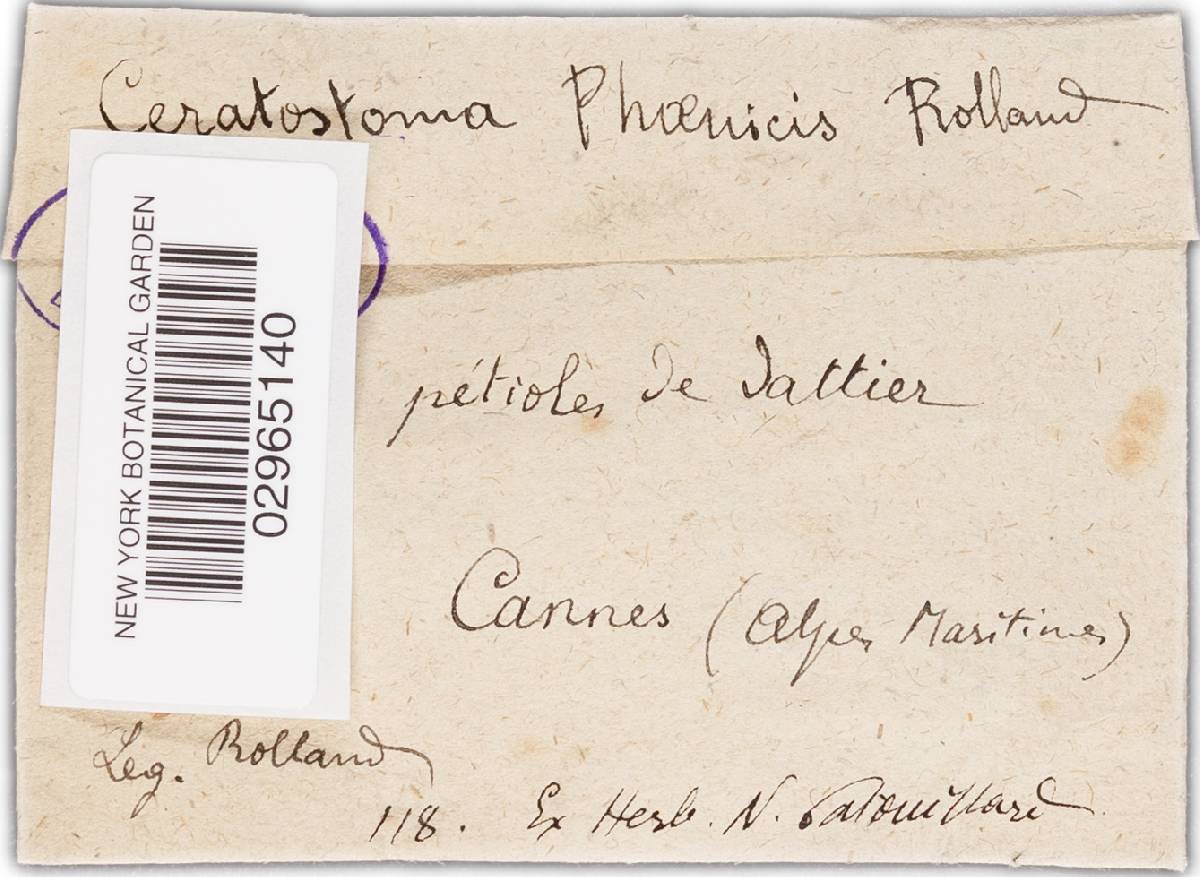 Ceratostoma Phœnicis Rolland
NEW YORK BOTANICAL GARDEN
02965140
pétioles de dattier
Cannes (Alpes Maritimes)
Leg. Rolland
118. Ex Herb. N. Patouillard